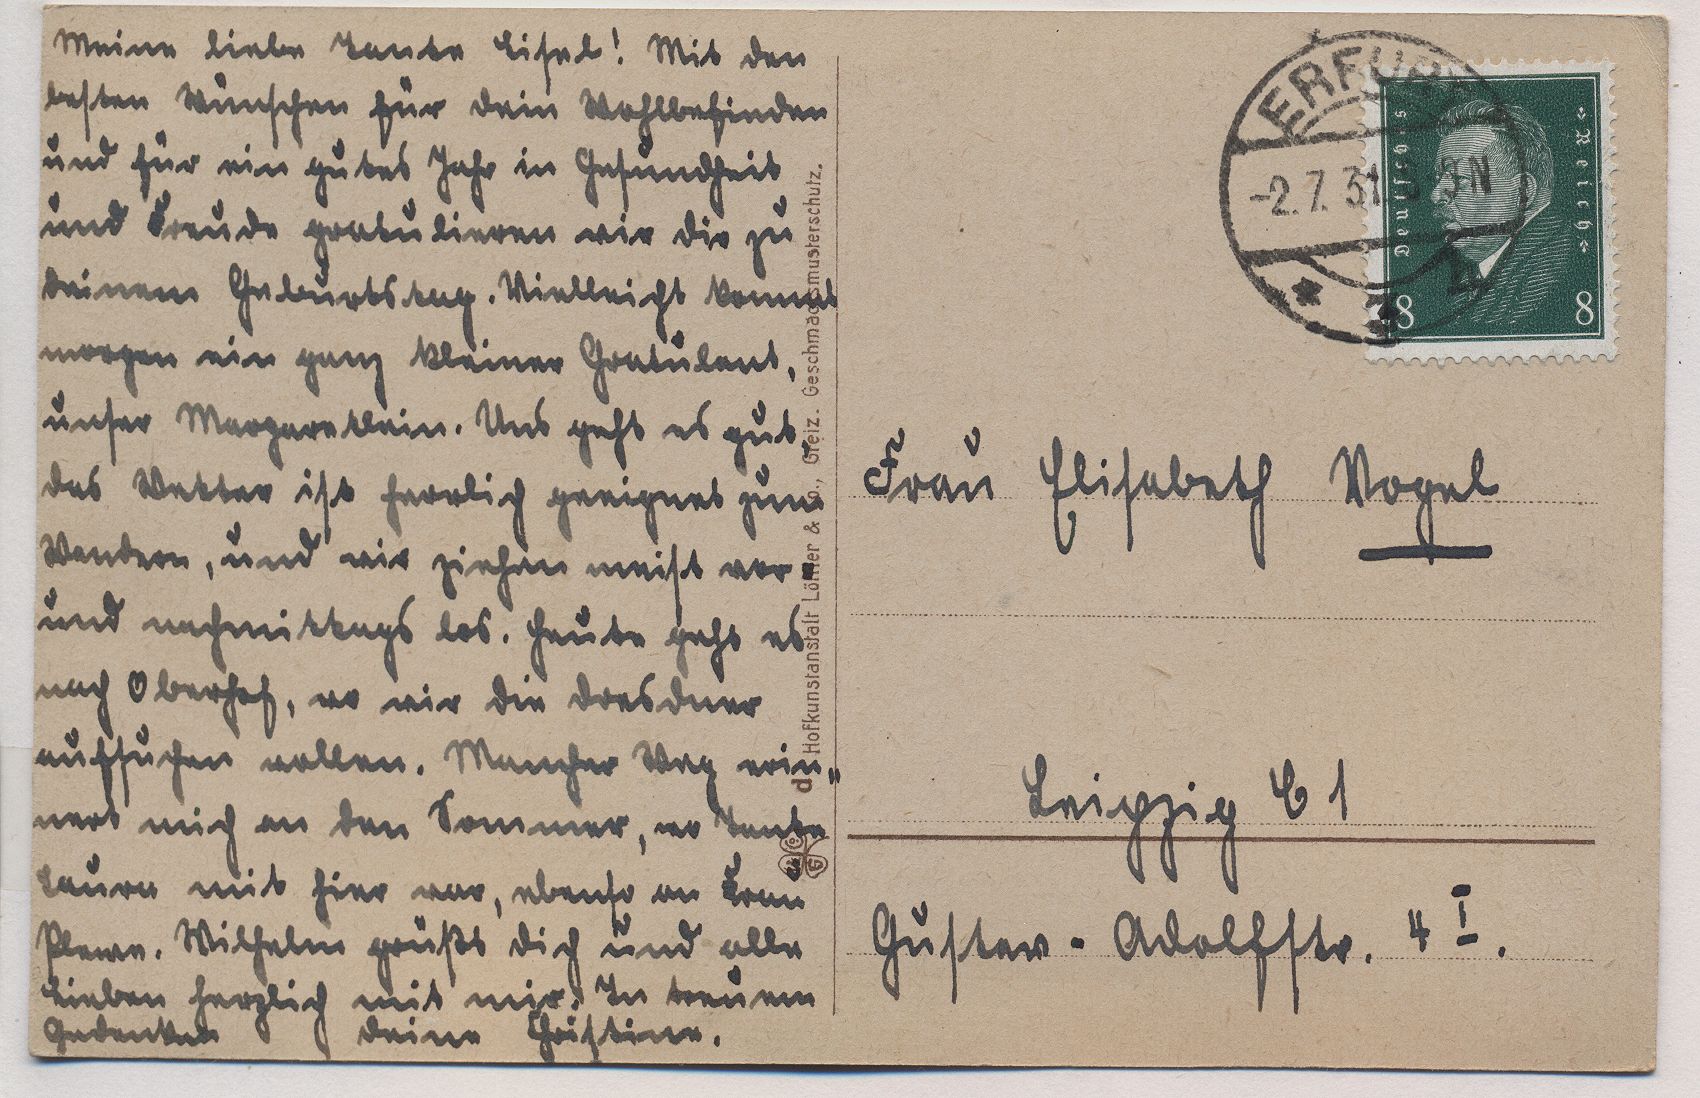 Meine liebe Tante Lisel! Mit den
besten Wünschen für dein Wohlbefinden
und für ein gutes Jahr in Gesundheit
und Freude gratulieren wir dir zu
deinem Geburtstag. Vielleicht kommt
morgen ein ganz kleiner Gratulant,
unser Margaretlein. Uns geht es gut,
das Wetter ist herrlich geeignet zum
Wandern, und wir ziehen meist vor-
und nachmittags los. Heute geht es
nach Oberhof, wo wir die Dresdner
aufsuchen wollen. Mancher Weg erin-
nert mich an den Sommer, wo Tante
Laura mit hier war, ebenso an Frau
Wilhelm grüßt dich und alle
Lieben herzlich mit mir. In treuem
Gedenken deine Christine.
Hofkunstanstalt Löffler & Co., Greiz. Geschmacksmusterschutz.
ERFURT
-2.7.31. 3N
* 2 z
Deutsches Reich
8 8
Frau Elisabeth Vogel
Leipzig C 1
Gustav-Adolfstr. 4 I.